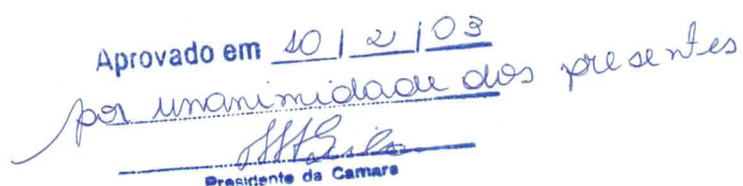 Aprovado em 10 | 2 | 03
por unanimidade dos presentes
Presidente da Camara